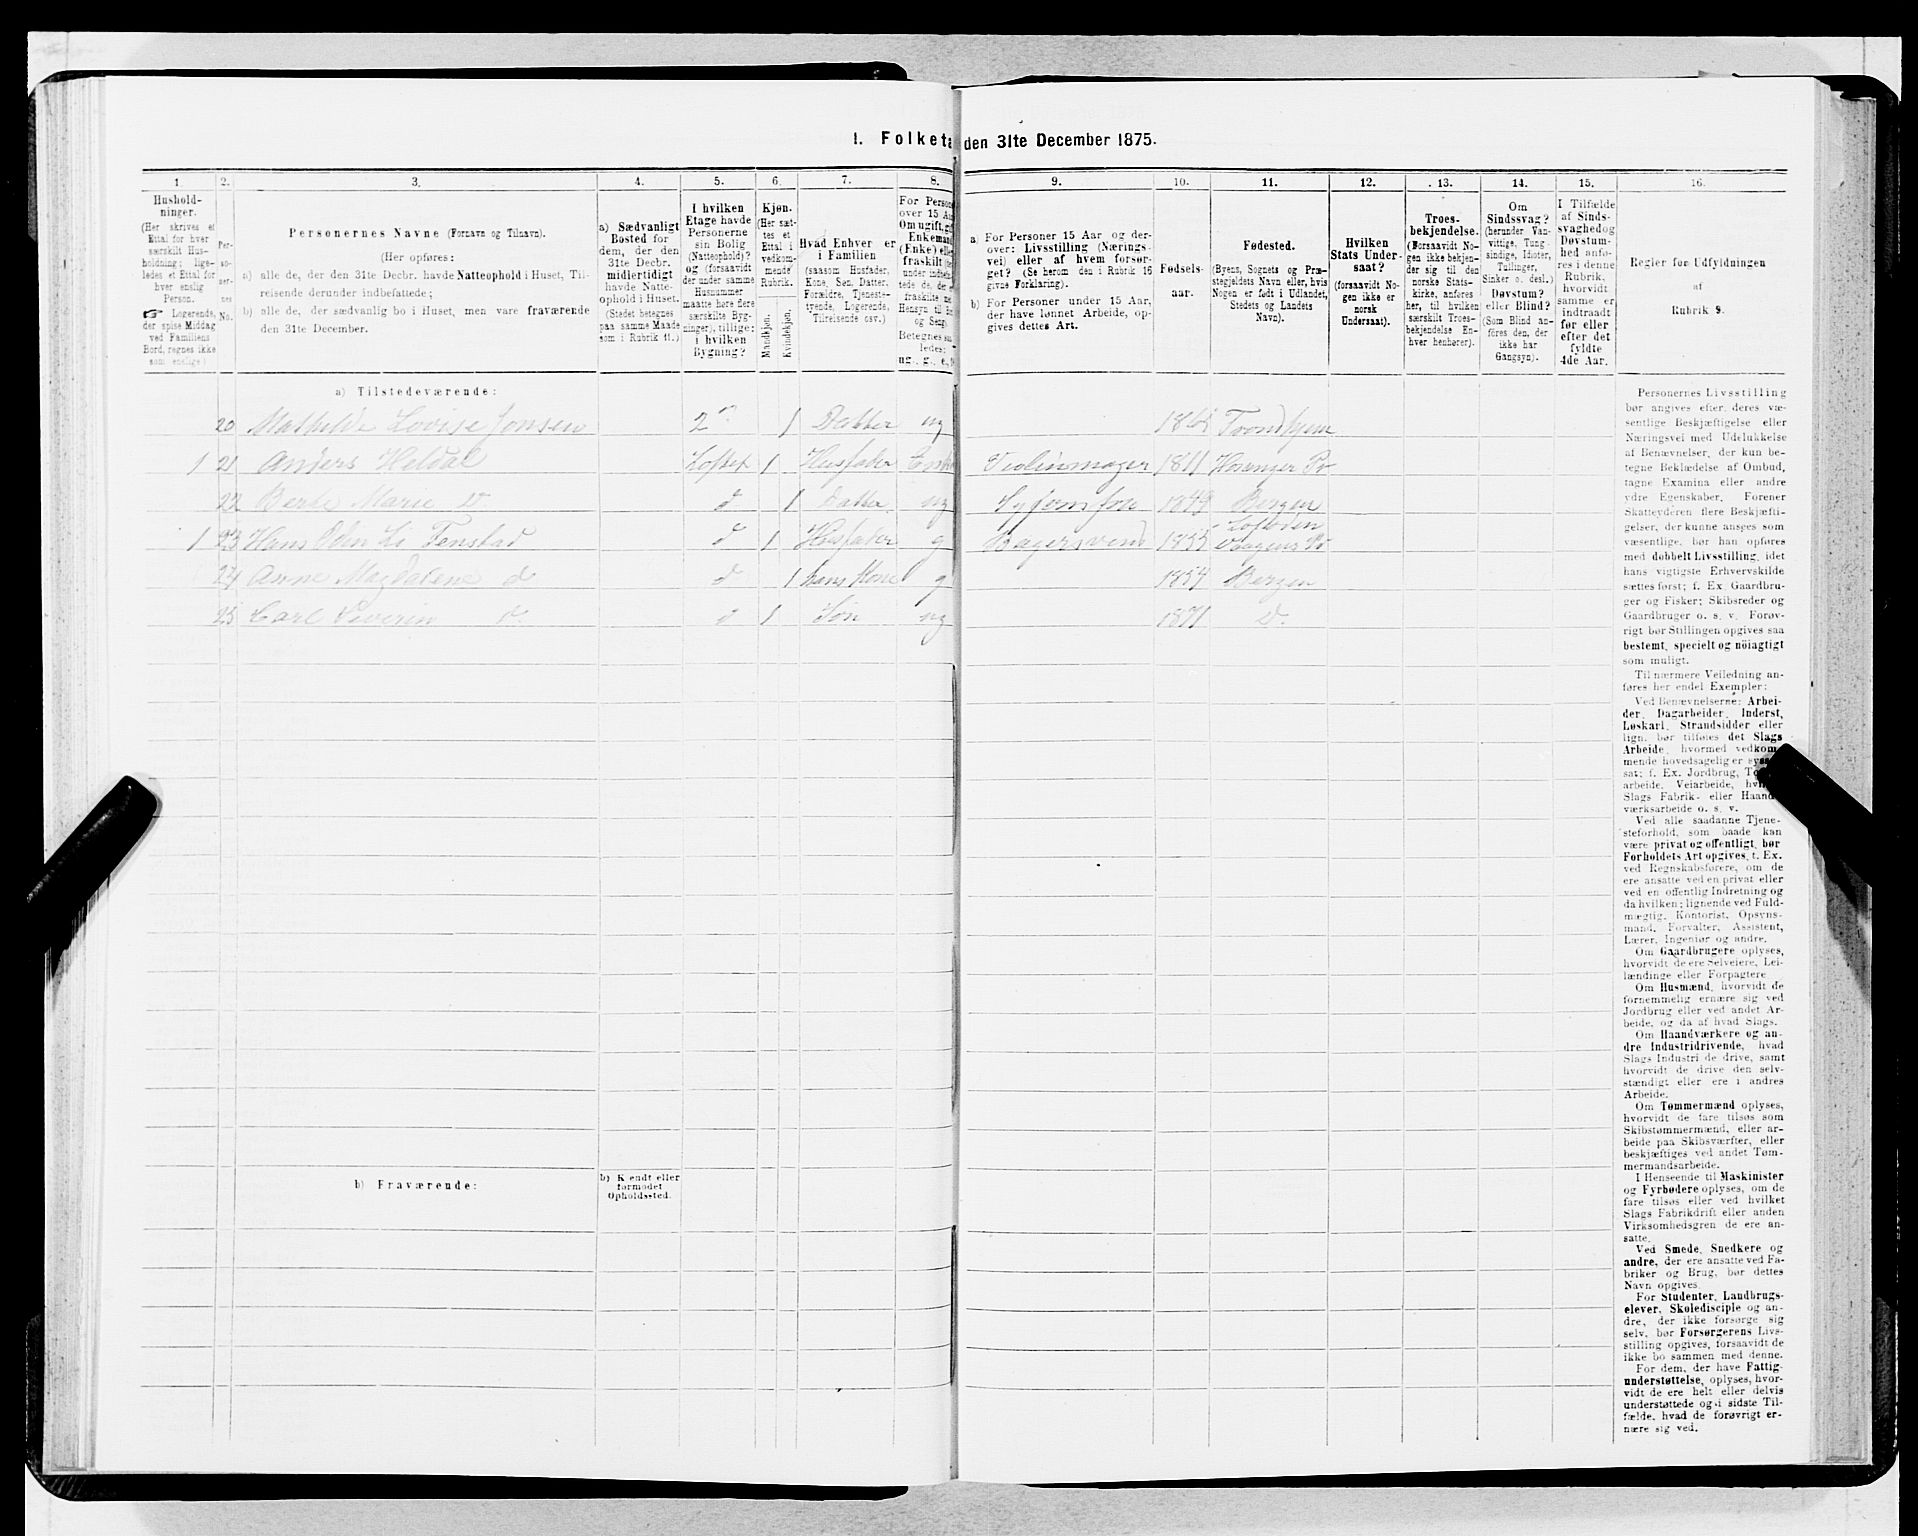 1. Folketæ
den 31te December 1875.
1.
Hushold-
ninger.
(Her skrives et
Ettal for hver
særskilt Hus-
holdning; lige-
ledes et Ettal for
hver enslig
Person.
☞ Logerende,
der spise Middag
ved Familiens
Bord, regnes ikke
som enslige.)
2.
Per-
so-
ner-
nes
No.
3.
Personernes Navne (Fornavn og Tilnavn).
(Her opføres:
a) alle de, der den 31te Decbr. havde Natteophold i Huset, Til-
reisende derunder indbefattede;
b) alle de, der sædvanlig bo i Huset, men vare fraværende
den 31te December.
4.
a) Sædvanligt
Bosted for
dem, der den
31te Decbr.
midlertidigt
havde Natte-
ophold i Huset.
(Stedet betegnes
paa samme Maade
som i Rubrik 11.)
5.
I hvilken
Etage havde
Personerne
sin Bolig
(Natteophold)?
og (forsaavidt
der under samme
Husnummer
maatte høre flere
særskilte Byg-
ninger), tillige:
i hvilken
Bygning?
6.
Kjøn.
(Her sæt-
tes et
Ettal i
vedkom-
mende
Rubrik.
Mandkjøn.
Kvindekjøn.
7.
Hvad Enhver er
i Familien
(saasom Husfader,
Kone, Søn, Datter,
Forældre, Tjeneste-
tyende, Logerende,
Tilreisende osv.)
8.
For Person
over 15 Aa
Om ugift, gif
Enkemand
(Enke) elle
fraskilt
9.
a) For Personer 15 Aar og der-
over: Livsstilling (Nærings-
vei) eller af hvem forsør-
get? (Se herom den i Rubrik 16
givne Forklaring).
b) For Personer under 15 Aar,
der have lønnet Arbeide, op-
gives dettes Art.
10.
Fødsels-
aar.
11.
Fødested.
(Byens, Sognets og Præ-
stegjeldets Navn eller, hvis
Nogen er født i Udlandet,
Stedets og Landets
Navn).
12.
Hvilken
Stats Under-
saat?
(forsaavidt No-
gen ikke er
norsk
Undersaat).
13.
Troes-
bekjendelse.
(Forsaavidt No-
gen ikke bekjen-
der sig til den
norske Stats-
kirke, anføres
her, til hvilken
særskilt Troes-
bekjendelse En-
hver henhører).
14.
Om
Sindssvag?
(herunder Van-
vittige, Tung-
sindige, Idioter,
Tullinger,
Sinker o. desl.)
Døvstum?
eller Blind?
(Som Blind an-
føres den, der
ikke har
Gangsyn).
15.
I Tilfælde
af Sinds-
svaghed og
Døvstum-
hed anfø-
res i denne
Rubrik,
hvorvidt
samme er
indtraadt
før eller
efter det
fyldte
4de Aar.
16.
Regler for Udfyldningen
af
Rubrik 9.
a) Tilstedeværende:
20 Mathilde Lovise Jonsen 2 1 Datter ug 1865 Trondhjem
1 21 Anders Heldal Loftet 1 Husfader Violinmager 1811
22 Berte Marie d 1 Datter ug 1849 Bergen
1 23 Hans d 1 Husfader g Bagersvend 1855 Lofoden
24 Anne Magdalene d d 1 hans Kone g 1854 Bergen
25 Carl Severin d d 1 Søn ug 1871 d.
b) Fraværende:
b) Kjendt eller
formodet
Opholdssted.
Personernes Livsstilling
bør angives efter deres væ-
sentlige Beskjæftigelse eller
Næringsvei med Udelukkelse
af Benævnelser, der kun be-
tegne Beklædelse af Ombud,
tagne Examina eller andre
ydre Egenskaber. Forener
Skatteyderen flere Beskjæfti-
gelser, der kunne ansees som
væsentlige, bør han opføres
med dobbelt Livsstilling, idet
hans vigtigste Erhvervskilde
sættes først; f. Ex. Gaardbru-
ger og Fisker; Skibsreder og
Gaardbruger o. s. v. Forøv-
rigt bør Stillingen opgives saa
bestemt, specielt og nøiagtigt
som muligt.
Til nærmere Veiledning an-
føres her endel Exempler:
Ved Benævnelserne: Arbei-
der, Dagarbeider, Inderst,
Løskarl, Strandsidder eller
lign. bør tilføies det Slags
Arbeide, hvormed vedkom-
mende hovedsagelig er
sat; f. Ex. Jordbrug,
arbeide, Veiarbeide,
Slags Fabrik- eller
værksarbeide o. s. v.
Ved alle saadanne Tjene-
steforhold, som baade kan
være privat og offentligt, bør
Forholdets Art opgives, t. Ex.
ved Regnskabsførere, om de
ere ansatte ved en privat eller
ved en offentlig Indretning og
da hvilken; lignende ved Fuld-
mægtig, Kontorist, Opsyns-
mand, Forvalter, Assistent,
Lærer, Ingeniør og andre.
Om Gaardbrugere oplyses,
hvorvidt de ere Selveiere, Lei-
lændinge eller Forpagtere
Om Husmænd, hvorvidt de
fornemmelig ernære sig ved
Jordbrug eller ved andet Ar-
beide, og da af hvad Slags.
Om Haandværkere og an-
dre Industridrivende, hvad
Slags Industri de drive, samt
hvorvidt de drive den selv-
stændigt eller ere i andres
Arbeide.
Om Tømmermænd oplyses,
hvorvidt de fare tilsøs som
Skibstømmermænd, eller ar-
beide paa Skibsværfter, eller
beskjæftiges ved andet Tøm-
mermandsarbeide.
I Henseende til Maskinister
og Fyrbødere oplyses, om de
fare tilsøs eller ved hvilket
Slags Fabrikdrift eller anden
Virksomhedsgren de ere an-
satte.
Ved Smede, Snedkere og
andre, der ere ansatte ved Fa-
briker og Brug, bør dettes
Navn opgives.
For Studenter, Landbrugs-
elever, Skoledisciple og an-
dre, der ikke forsørge sig
selv, bør Forsørgerens Livs-
stilling opgives, forsaavidt de
ikke bo sammen med denne.
For dem, der have Fattig-
understøttelse, oplyses, hvor-
vidt de ere helt eller delvis
understøttede og i sidste Til-
fælde, hvad de forøvrigt er-
nære sig ved.